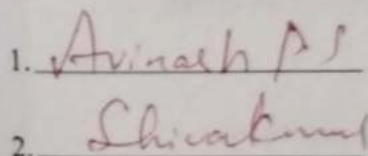 1. Avinash P S
2. Shivakumar